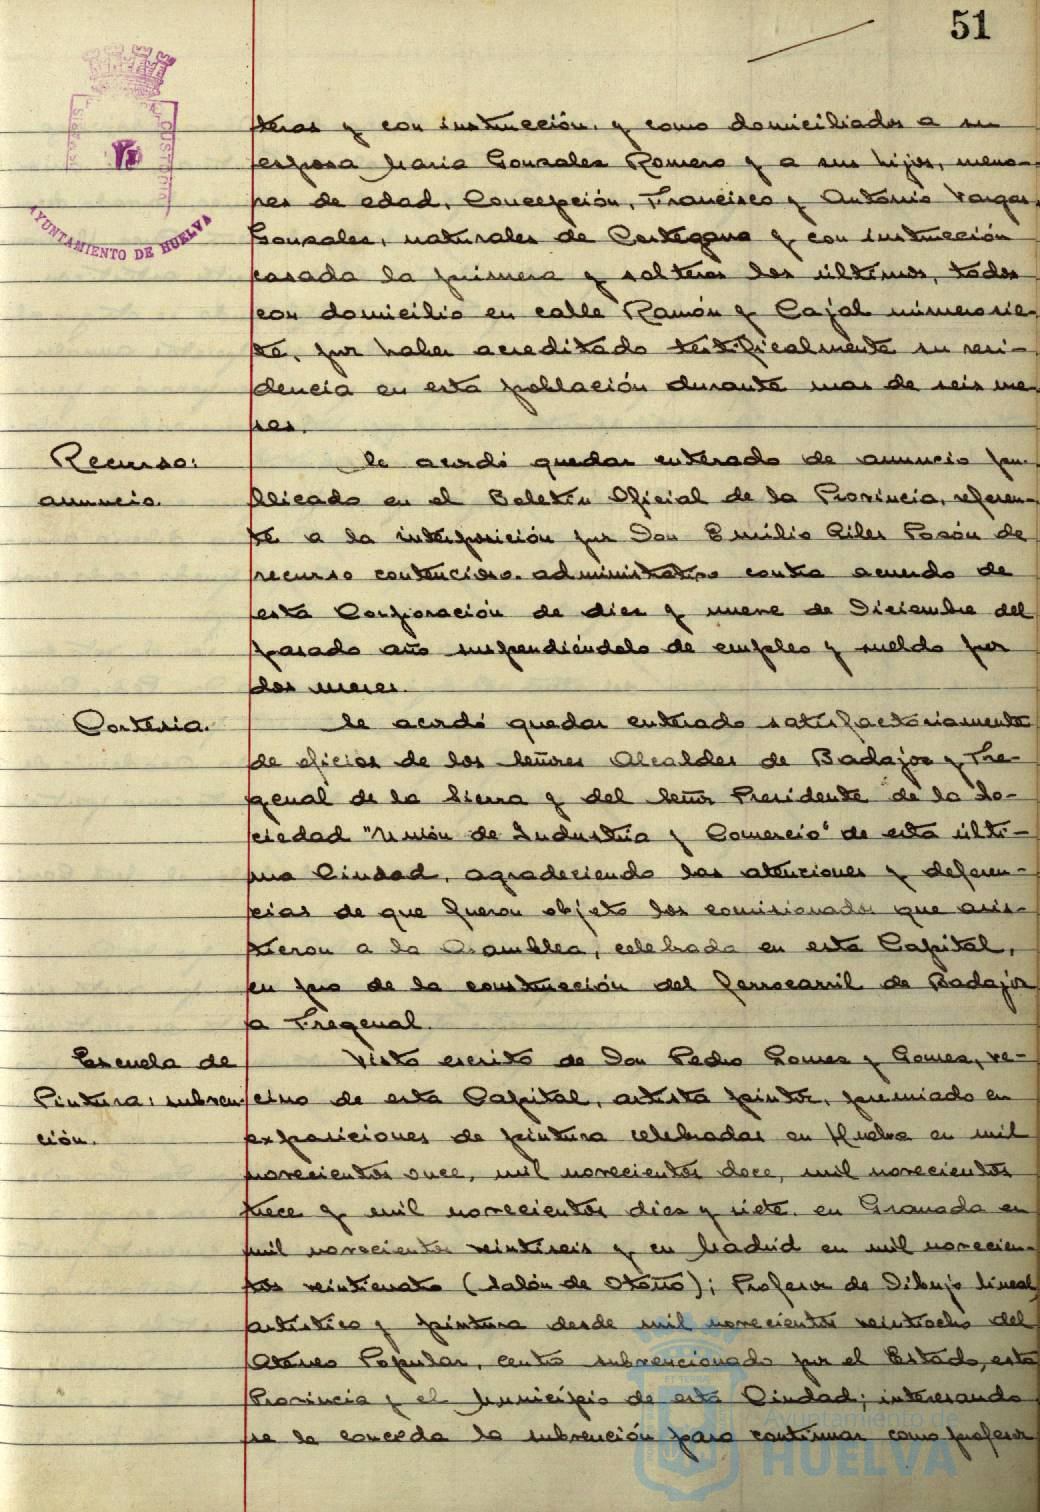 51
AYUNTAMIENTO DE HUELVA
teras y con instrucción, y como domiciliados a su
esposa María Gonzales Romero y a sus hijos, meno-
res de edad, Concepción, Francisco y Antonio Vargas
Gonzales, naturales de Cortegana y con instrucción
casada la primera y solteros los últimos, todos
con domicilio en calle Ramón y Cajal número sie-
te, por haber acreditado testificalmente su resi-
dencia en esta población durante mas de seis me-
ses.
Recurso:
anuncio.
Se acordó quedar enterado de anuncio pu-
blicado en el Boletín Oficial de la Provincia, referen-
te a la interposición por Don Emilio Giles Pasón de
recurso contencioso-administrativo contra acuerdo de
esta Corporación de diez y nueve de Diciembre del
pasado año suspendiéndolo de empleo y sueldo por
dos meses.
Cortesia.
Se acordó quedar enterado satisfactoriamente
de oficios de los Señores Alcaldes de Badajoz y Fre-
genal de la Sierra y del Señor Presidente de la So-
ciedad "Unión de Industria y Comercio" de esta últi-
ma Ciudad, agradeciendo las atenciones y deferen-
cias de que fueron objeto los comisionados que asis-
tieron a la Asamblea, celebrada en esta Capital,
en pro de la construcción del ferrocarril de Badajoz
a Fregenal.
Escuela de
Pintura: subven-
ción.
Visto escrito de Don Pedro Gomez y Gomez, ve-
cino de esta Capital, artista pintor, premiado en
exposiciones de pintura celebradas en Huelva en mil
novecientos once, mil novecientos doce, mil novecientos
trece y mil novecientos diez y siete, en Granada en
mil novecientos veintiseis y en Madrid en mil novecien-
tos veinticuatro (Salón de Otoño); Profesor de Dibujo lineal,
artístico y pintura desde mil novecientos veintiocho del
Ateneo Popular, centro subvencionado por el Estado, esta
Provincia y el Municipio de esta Ciudad; interesando
se le conceda la subvención para continuar como profesor
Ayuntamiento de
HUELVA